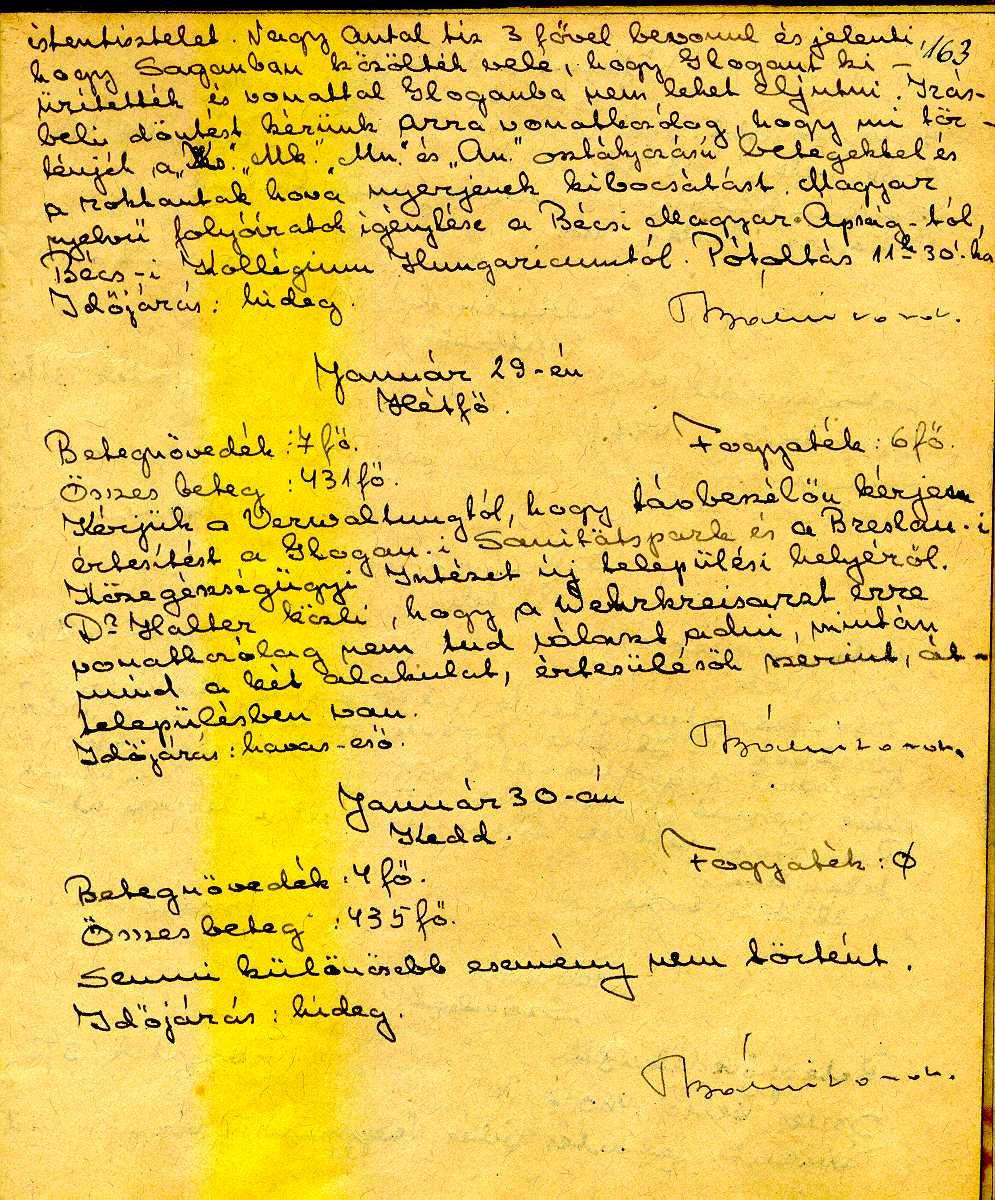 163
istentisztelet. Nagy Antal tiz 3 fővel bevonul és jelenti,
hogy Saganban közölték vele, hogy Glogaut ki-
ürítették és vonattal Glogauba nem lehet eljutni. Irás-
beli döntést kérünk arra vonatkozólag, hogy mi tör-
ténjék a "Mk." "Mn." és "An." osztályozású betegekkel és
a rokkantak hová nyerjenek kibocsátást. Magyar
nyelvű folyóiratok igénylése a Bécsi Magyar Ujság-tól,
Bécs-i Kollégium Hungaricumtól. Pótoltás 11h 30'-ko
Időjárás: hideg.
Január 29-én
Hétfő.
Betegnövedék: 7 fő. Fogyaték: 6 fő.
Összes beteg: 431 fő.
Kérjük a Verwaltungtól, hogy távbeszélőn kérjen
értesítést a Glogau-i Sanitätspark és a Breslau-i
Közegészségügyi Intézet új települési helyéről.
Dr Halter közli, hogy a Wehrkreisarzt erre
vonatkozólag nem tud választ adni, miután
mind a két alakulat, értesülésök szerint, át-
településben van.
Időjárás: havas-eső.
Január 30-án
Kedd.
Betegnövedék: 4 fő. Fogyaték: Ø
Összes beteg: 435 fő.
Semmi különösebb esemény nem történt.
Időjárás: hideg.